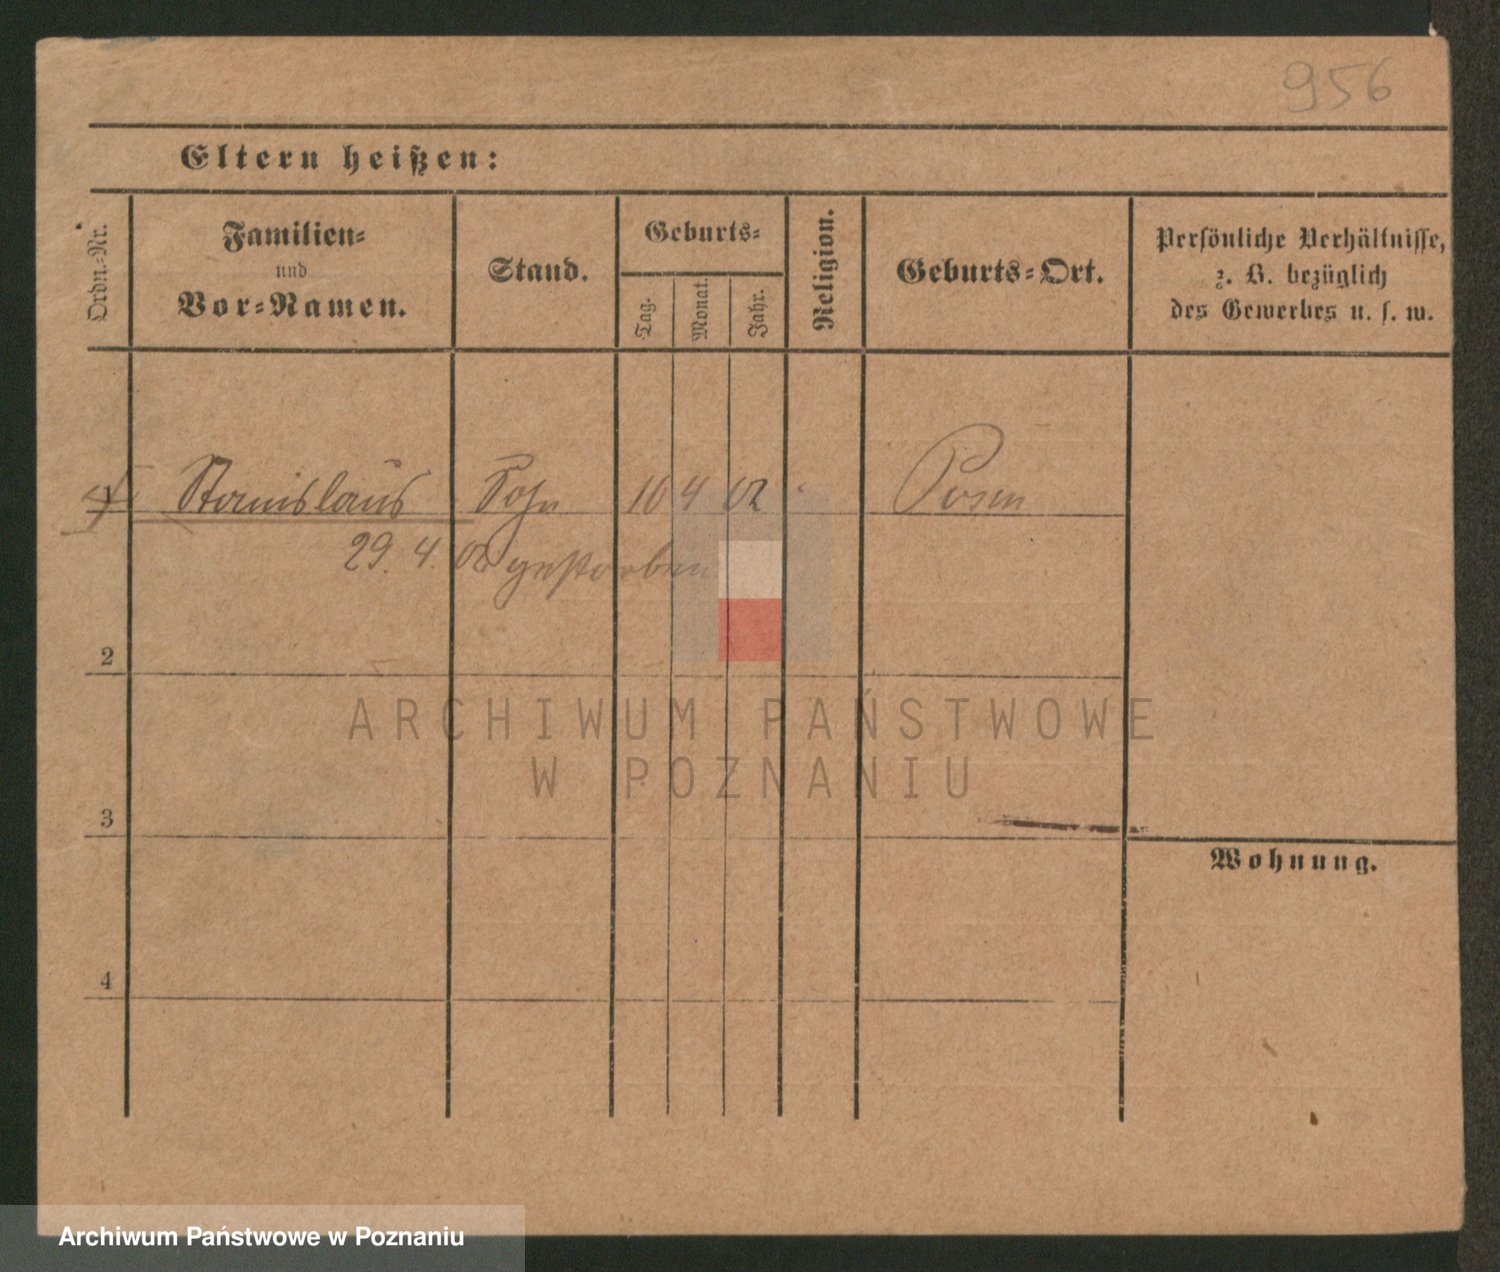 956
Eltern heißen:
Ordn.-Nr.
Familien-
und
Vor-Namen.
Stand.
Geburts-
Tag.
Monat.
Jahr.
Religion.
Geburts-Ort.
Persönliche Verhältnisse,
z. B. bezüglich
des Gewerbes u. s. w.
1 Stanislaus Sohn 10 4 02 Posen
29. 4. 02 gestorben
2
3
4
Wohnung.
ARCHIWUM PAŃSTWOWE
W POZNANIU
Archiwum Państwowe w Poznaniu